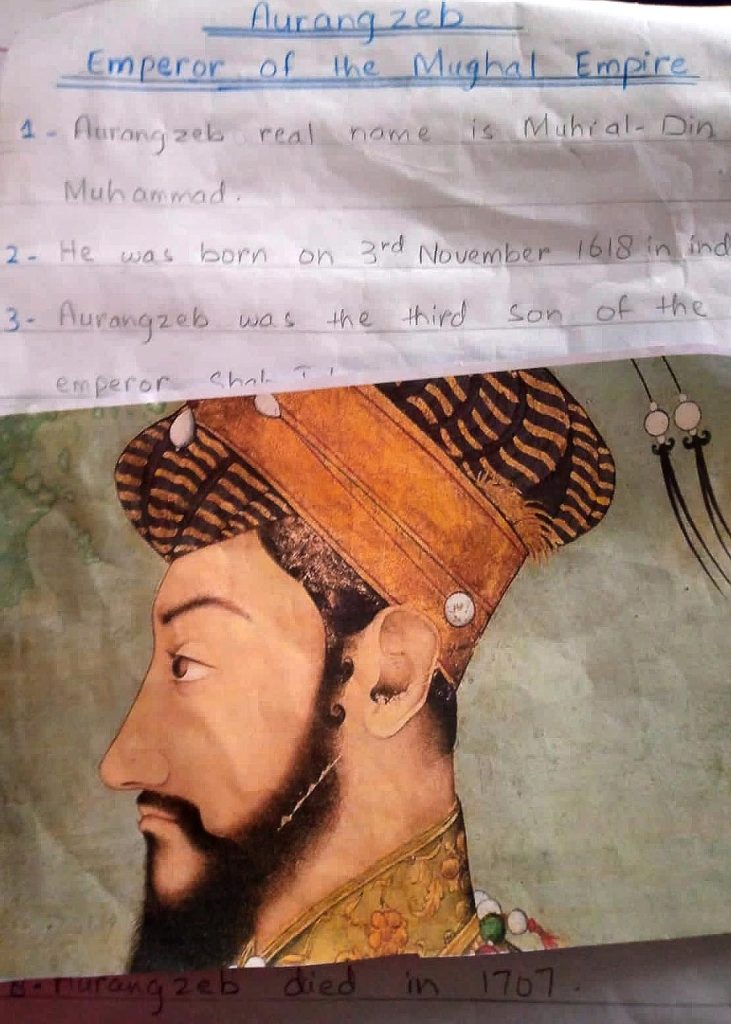 Aurangzeb
Emperor of the Mughal Empire
1- Aurangzeb real name is Muhial-Din
Muhammad.
2- He was born on 3rd November 1618 in ind
3- Aurangzeb was the third son of the
emperor Shah
Aurangzeb died in 1707.